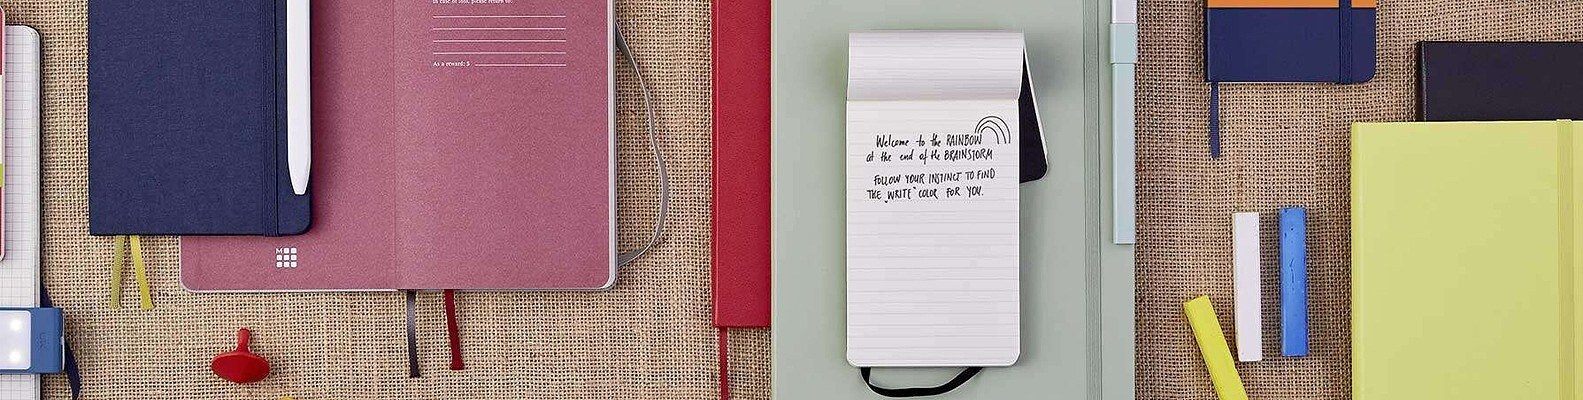 In case of loss, please return to:
As a reward: $
Welcome to the RAINBOW
at the end of the BRAINSTORM
FOLLOW YOUR INSTINCT TO FIND
THE „WRITE" COLOR FOR YOU.
M